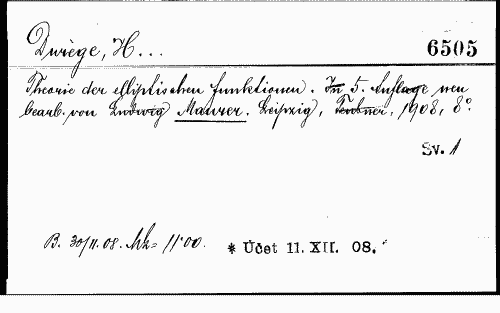 Durège, H...
6505
Theorie der elliptischen Funktionen. In 5. Auflage neu
bearb. von Ludwig Maurer. Leipzig, Teubner, 1908, 8°.
Sv. 1
B. 30/11.08. Mk= 11·00.
* Účet 11. XII. 08.